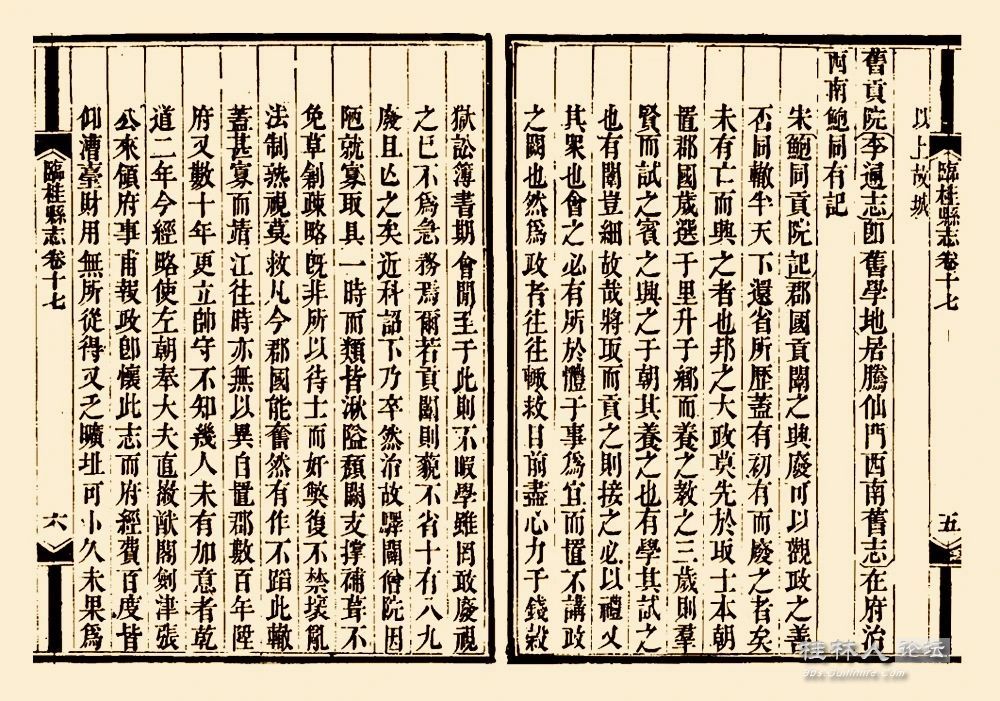 臨桂縣志 卷十七 五
以上故城
舊貢院李通志即舊學地居騰仙門西南舊志在府治
西南鮑同有記
宋鮑同貢院記郡國貢闈之興廢可以觀政之善
否同轍半天下還省所歷蓋有初有而廢之者矣
未有亡而興之者也邦之大政莫先於取士本朝
置郡國歲選于里升于鄉而養之教之三歲則羣
賢而試之賓之興之于朝其養之也有學其試之
也有闈豈細故哉將取而貢之則接之必以禮乂
其眾也會之必有所於體于事爲宜而置不講政
之闕也然爲政者往往輙救目前盡心力于錢穀
獄訟簿書期會閒至于此則不暇學雖罔敢廢視
之已不爲急務焉爾若貢闈則藐不省十有八九
廢且亾之矣近科詔下乃卒然治故驛闢僧院因
陋就寡取具一時而類皆湫隘頹闕支撐補葺不
免草創疎略旣非所以待士而奸獘復不禁壞亂
法制熟視莫救凡今郡國能奮然有作不蹈此轍
蓋甚寡而靖江往時亦無以異自置郡數百年陞
府又數十年更立帥守不知幾人未有加意者乾
道二年今經略使左朝奉大夫直敷猷閣劍津張
公來領府事甫報政卽懷此志而府經費百度皆
仰漕臺財用無所從得又乏曠址可小久未果爲
臨桂縣志 卷十七 六
桂林人论坛
bbs.guilinlife.com